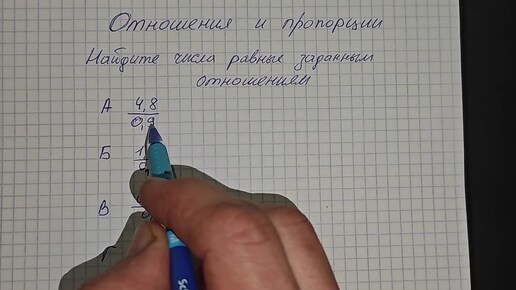 Отношения и пропорции
Найдите числа равные заданным
отношением
А 4,8
0,9
Б 1
В